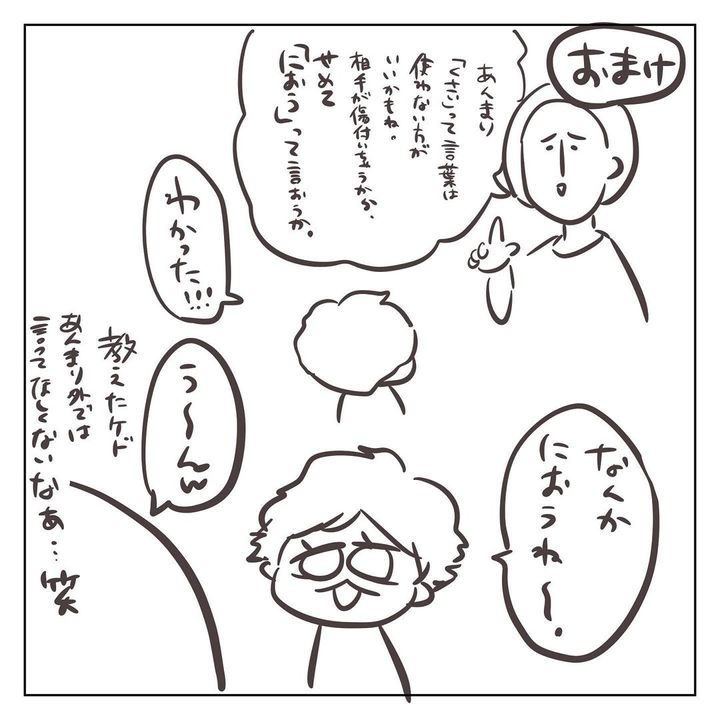 おまけ
あんまり
「くさい」って言葉は
使わない方が
いいかもね。
相手が傷付いちゃうから、
せめて
「におう」って言おうか。
わかった!!!
なんか
におうね〜。
う〜んw
教えたケド
あんまり外では
言ってほしくないなぁ…笑